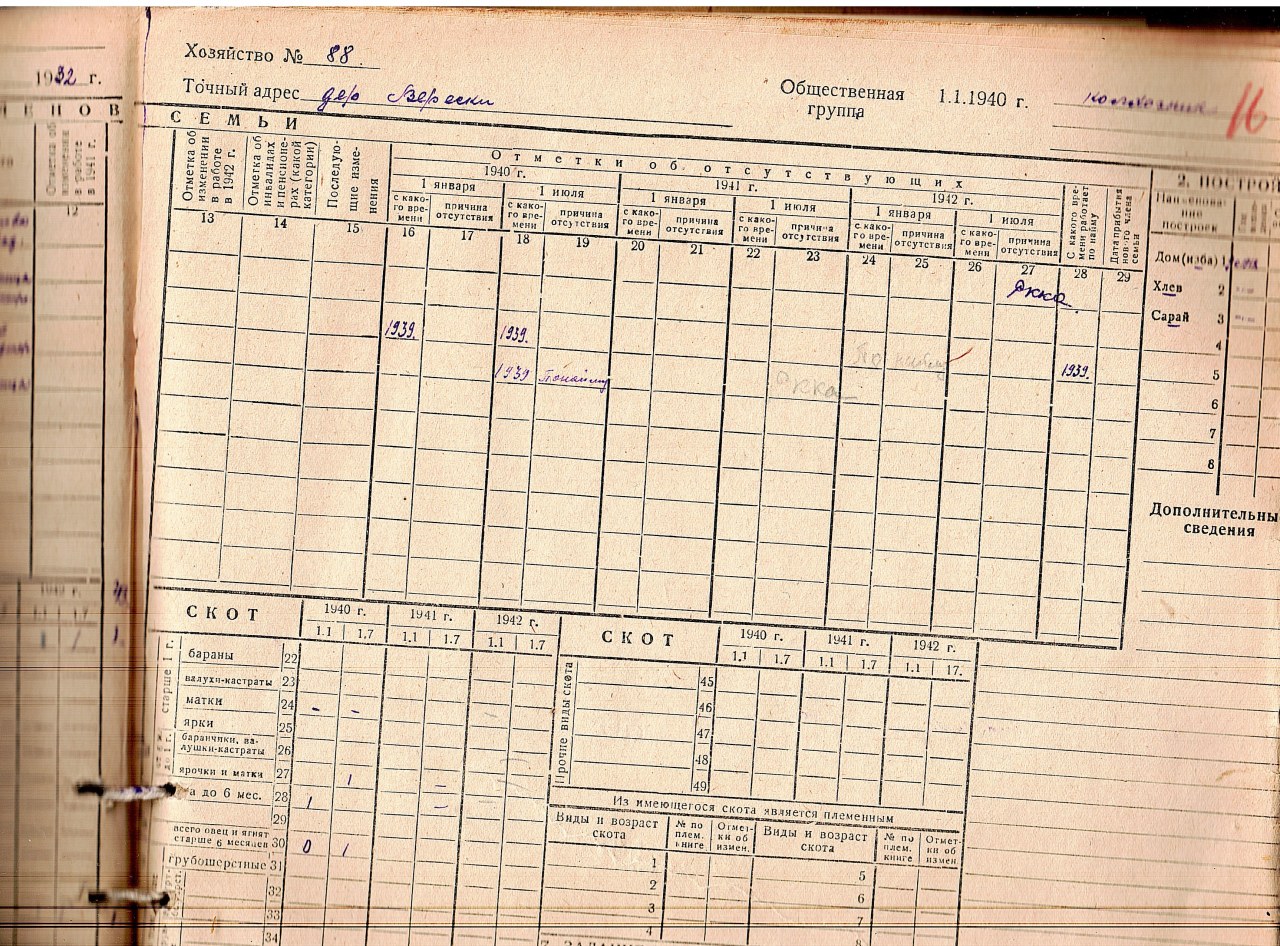 Хозяйство № 88.
1932 г.
Точный адрес дер Верески
Общественная группа 1.1.1940 г. колхозник 16
ЕНОВ
СЕМЬИ
Отметка об изменении в работе в 1941 г.
12
Отметка об изменении в работе в 1942 г.
Отметка об инвалидах и пенсионерах (какой категории)
Последующие изменения
Отметки об отсутствующих
1940 г. 1941 г. 1942 г.
1 января 1 июля 1 января 1 июля 1 января 1 июля
с какого времени причина отсутствия с какого времени причина отсутствия с какого времени причина отсутствия с какого времени причина отсутствия с какого времени причина отсутствия с какого времени причина отсутствия
С какого времени работает по найму
Дата прибытия нового члена семьи
13 14 15 16 17 18 19 20 21 22 23 24 25 26 27 28 29
РККА.
1939. 1939.
1939 По найму РККА По найму 1939.
2. ПОСТРОЙ
Наименование построек
Дом (изба) 1
Хлев 2
Сарай 3
4
5
6
7
8
Дополнительны
сведения
СКОТ 1940 г. 1941 г. 1942 г.
1.1 1.7 1.1 1.7 1.1 1.7
старше 1 г.
до 1 г.
бараны 22
валухи-кастраты 23
матки 24 - -
ярки 25
баранчики, валушки-кастраты 26
ярочки и матки 27 1 -
а до 6 мес. 28 1 -
29
всего овец и ягнят старше 6 месяцев 30 0 1
грубошерстные 31
32
33
34
СКОТ 1940 г. 1941 г. 1942 г.
1.1 1.7 1.1 1.7 1.1 17.
Прочие виды скота
45
46
47
48
49
Из имеющегося скота является племенным
Виды и возраст скота № по плем. книге Отметки об измен. Виды и возраст скота № по плем. книге Отметки об измен.
1 5
2 6
3 7
4 8